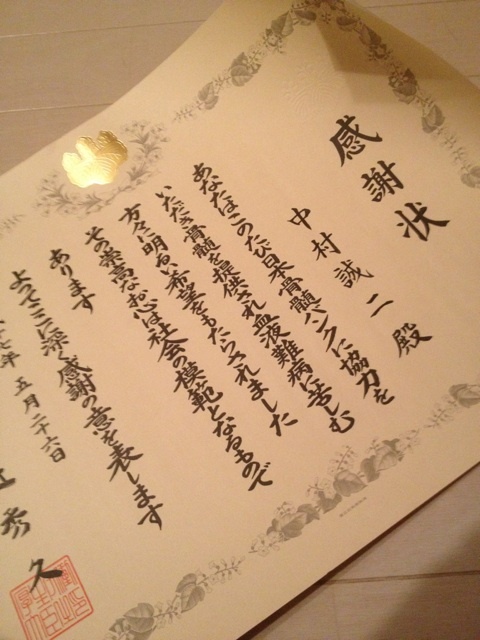 感謝状
中村誠二殿
あなたはこのたび日本骨髄バンクに協力を
いただき骨髄を提供され血液難病に苦しむ
方々に明るい希望をもたらされました
その崇高なお心は社会の模範となるもので
あります
よってここに深く感謝の意を表します
七年五月二十六日
秀久